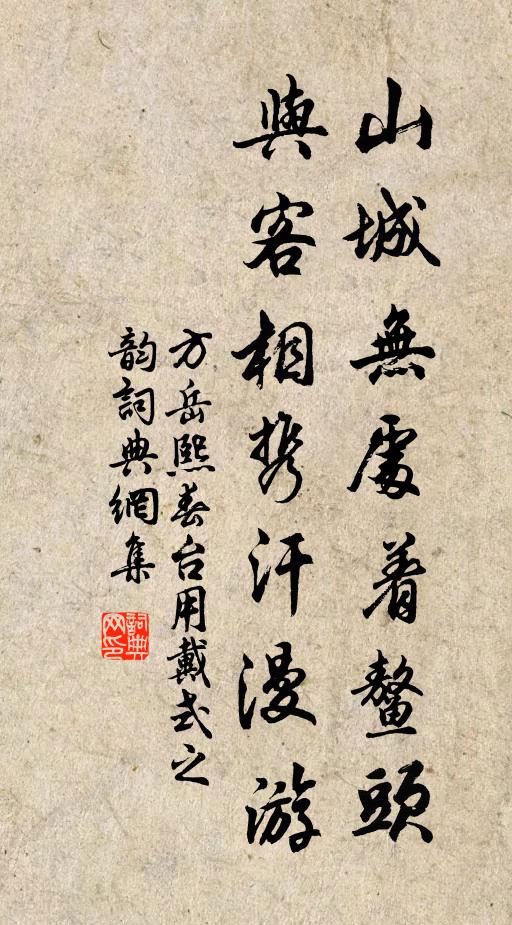 山城無處着鼇頭
與客相携汗漫游
方岳熙春台用戴式之
韵詞典網集
詞典网印